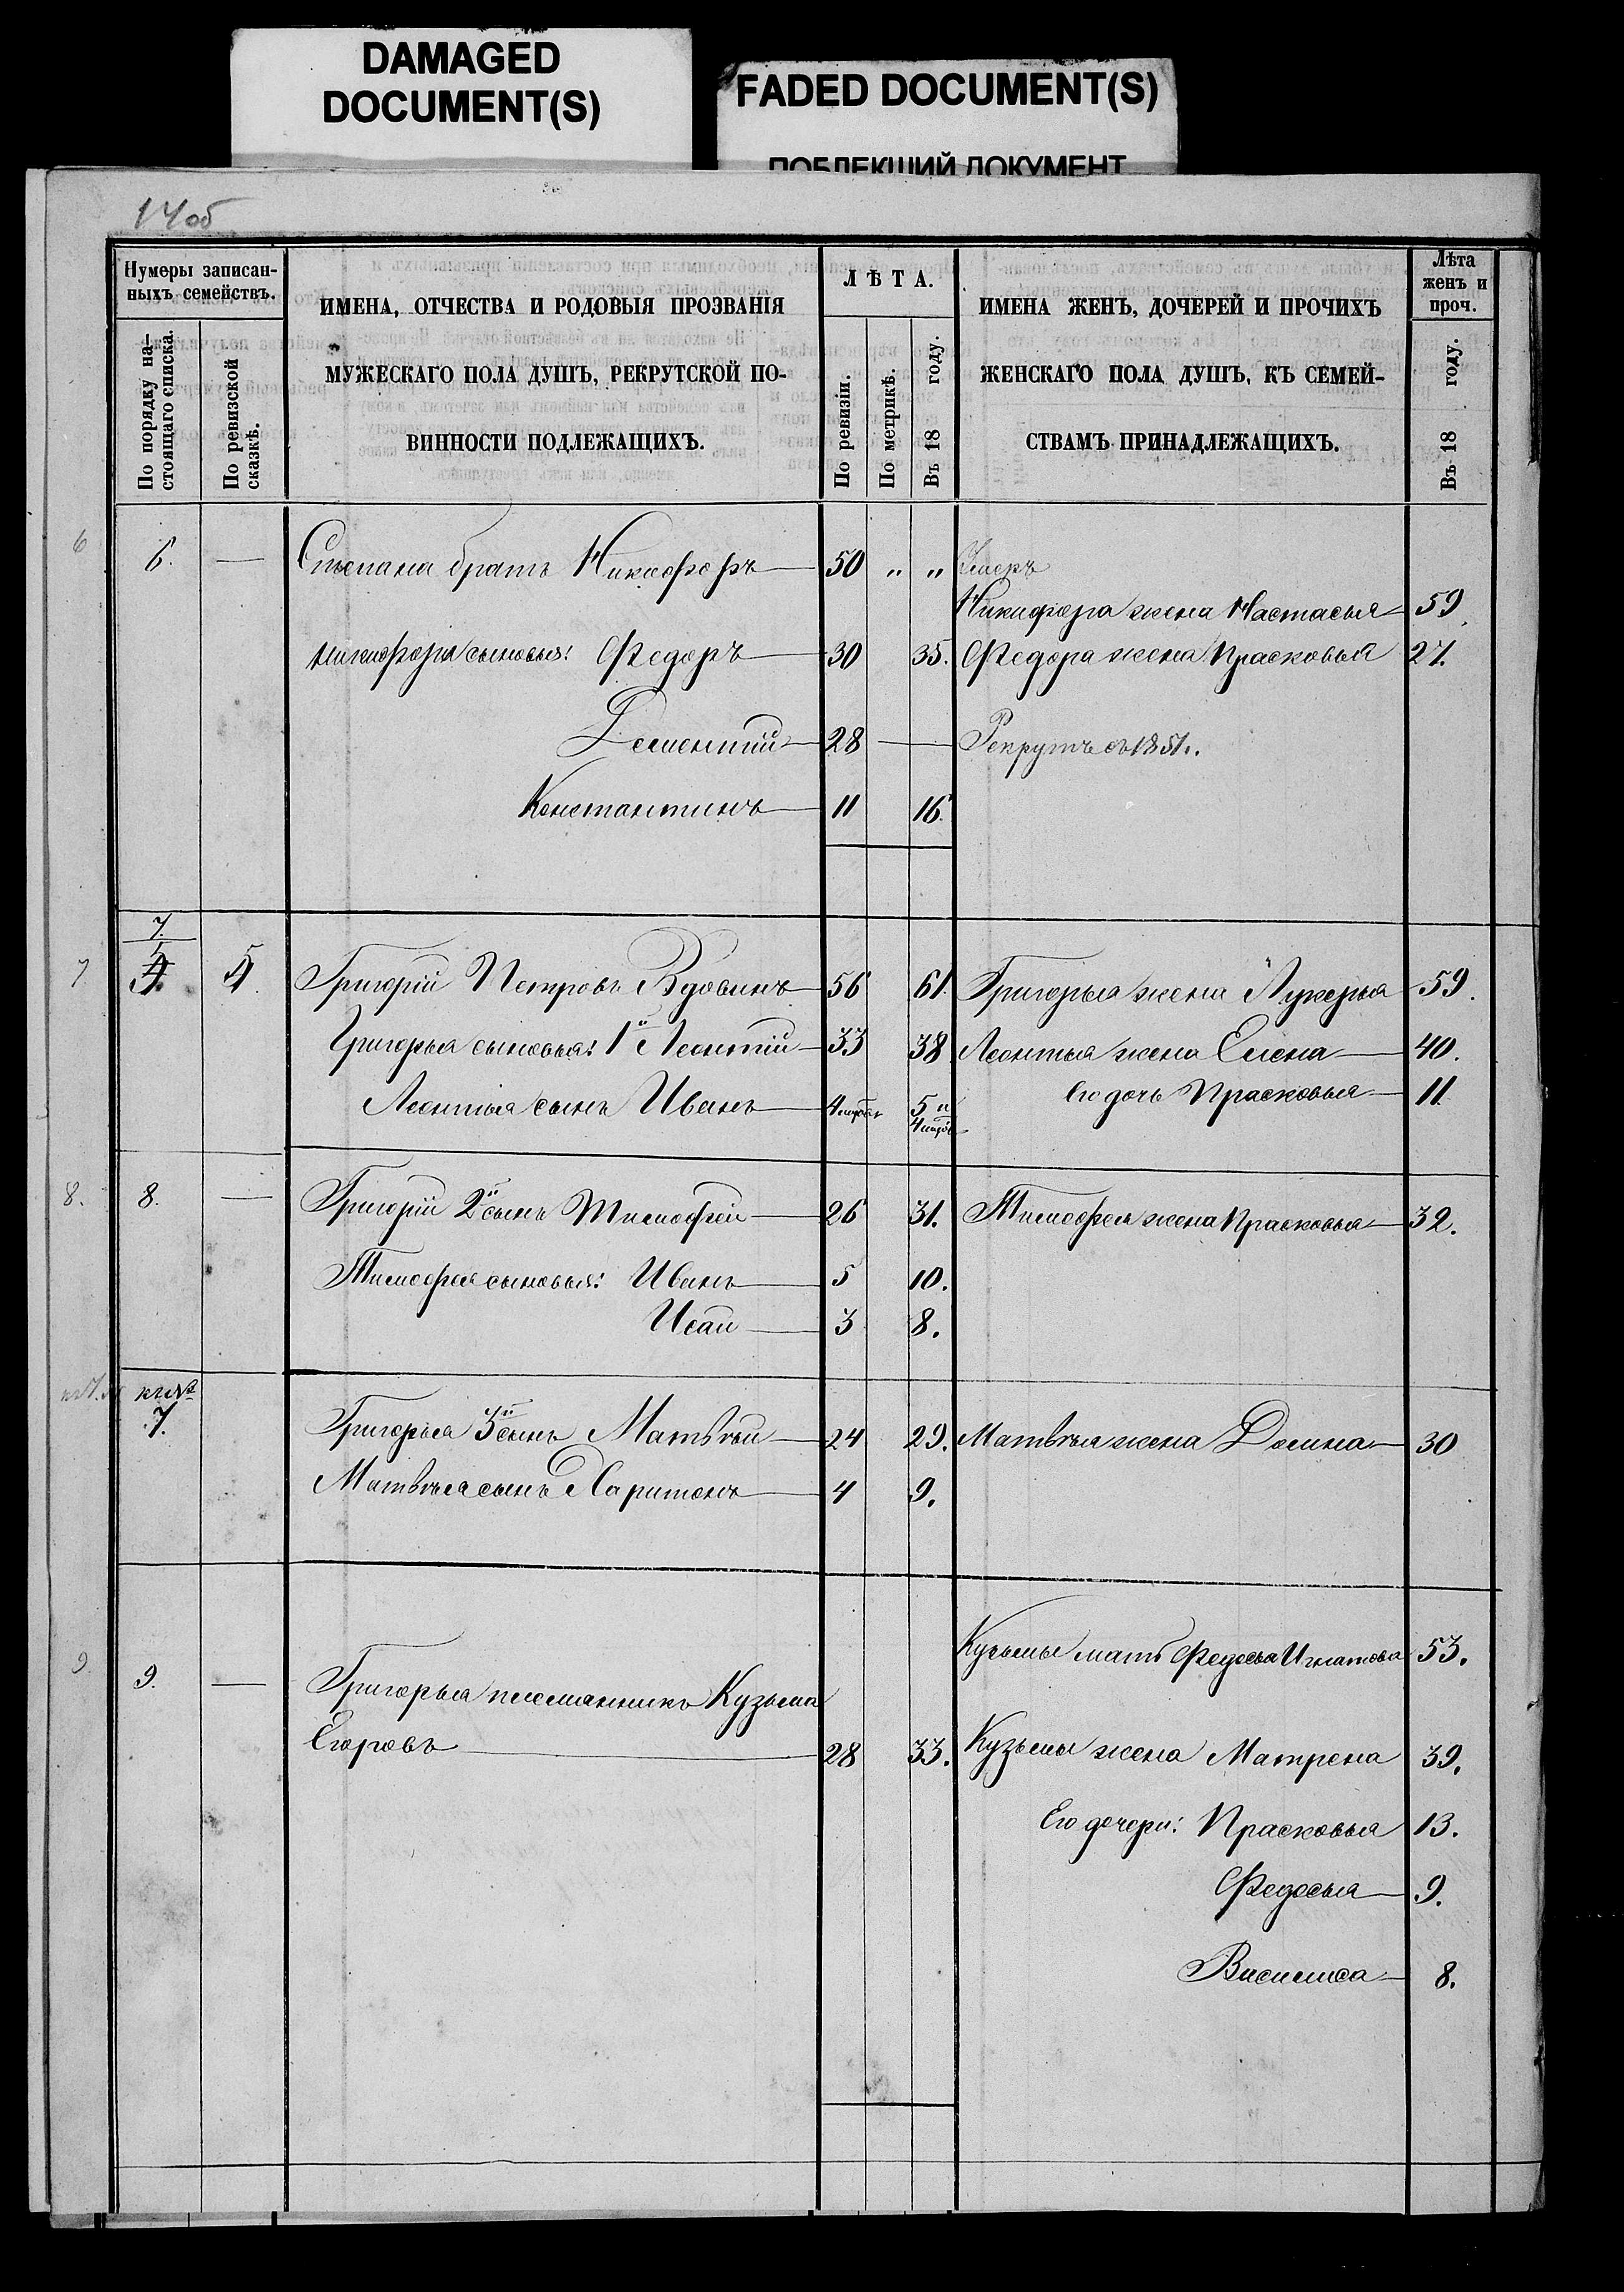 DAMAGED
DOCUMENT(S)
FADED DOCUMENT(S)
ПОБЛЕКШИЙ ДОКУМЕНТ
14 об
Нумеры записан-
ныхъ семействъ.
По порядку на-
стоящаго списка.
По ревизской
сказкѣ.
ИМЕНА, ОТЧЕСТВА И РОДОВЫЯ ПРОЗВАНІЯ
МУЖЕСКАГО ПОЛА ДУШЪ, РЕКРУТСКОЙ ПО-
ВИННОСТИ ПОДЛЕЖАЩИХЪ.
ЛѢТА.
По ревизіи.
По метрикѣ.
Въ 18 году.
ИМЕНА ЖЕНЪ, ДОЧЕРЕЙ И ПРОЧИХЪ
ЖЕНСКАГО ПОЛА ДУШЪ, КЪ СЕМЕЙ-
СТВАМЪ ПРИНАДЛЕЖАЩИХЪ.
Лѣта
женъ и
проч.
Въ 18 году.
6 6. — Степана братъ Никифоръ 50 „ „ Умеръ
Никифора жена Настасья 59.
Никифора сыновья: Федоръ 30 35. Федора жена Прасковья 27.
Дементій 28 — Рекрутъ съ 1851.
Константинъ 11 16.
7.
7 5 5
4. 4. Григорій Петровъ Вдовинъ 56 61. Григорья жена Лукерья 59.
Григорья сыновья: 1й Леонтій 33 38 Леонтья жена Елена 40.
Леонтья сынъ Иванъ 4 5 и Его дочь Прасковья 11.
4
8. 8. — Григорій 2й сынъ Тимофей 26 31. Тимофея жена Прасковья 32.
Тимофея сыновья: Иванъ 5 10.
Исай 3 8.
къ №
7. Григорья 3й сынъ Матвѣй 24 29. Матвѣя жена Домна 30
Матвѣя сынъ Харитонъ 4 9.
Кузьмы мать Федосья Игнатова 53.
9 9. — Григорья племянникъ Кузьма
Егоровъ 28 33. Кузьмы жена Матрена 39.
Его дочери: Прасковья 13.
Федосья 9.
Василиса 8.